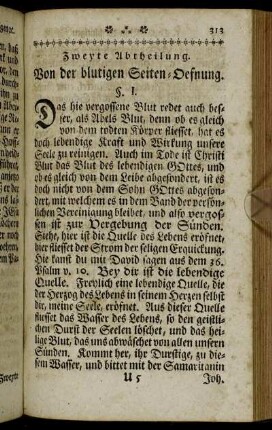 313
Zweyte Abtheilung.
Von der blutigen Seiten-Oefnung.
§. I.
Das hie vergossene Blut redet auch bes-
ser, als Abels Blut, denn ob es gleich
von dem todten Körper fliesset, hat es
doch lebendige Kraft und Wirkung unsere
Seele zu reinigen. Auch im Tode ist Christi
Blut das Blut des lebendigen GOttes, und
ob es gleich von dem Leibe abgesondert, ist es
doch nicht von dem Sohn GOttes abgeson-
dert, mit welchem es in dem Band der persön-
lichen Vereinigung bleibet, und also vergos-
sen ist zur Vergebung der Sünden.
Siehe, hier ist die Quelle des Lebens eröfnet,
hier fliesset der Strom der seligen Erquickung.
Hie kanst du mit David sagen aus dem 36.
Psalm v. 10. Bey dir ist die lebendige
Quelle. Freylich eine lebendige Quelle, die
der Herzog des Lebens in seinem Herzen selbst
dir, meine Seele, eröfnet. Aus dieser Quelle
fliesset das Wasser des Lebens, so den geistli-
chen Durst der Seelen löschet, und das hei-
lige Blut, das uns abwäschet von allen unsern
Sünden. Kommt her, ihr Durstige, zu die-
sem Wasser, und bittet mit der Samaritanin
U 5 Joh.